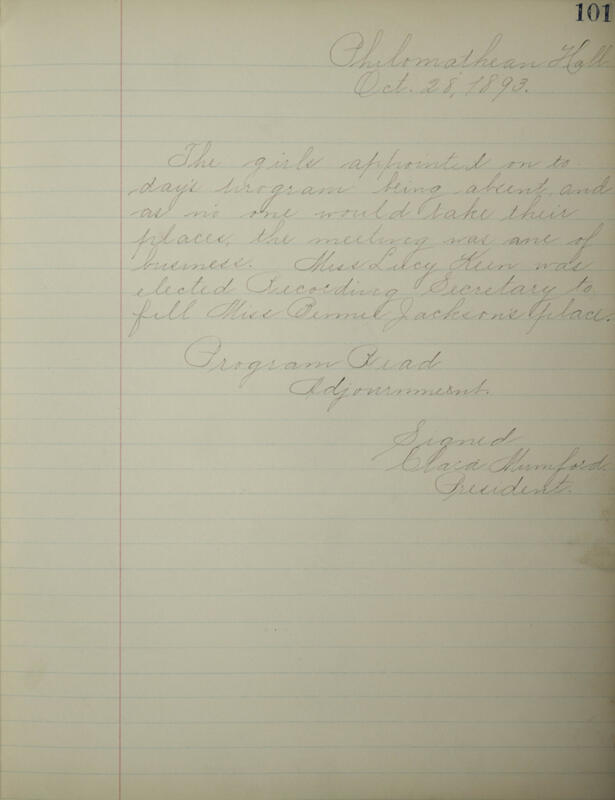 101
Philomathean Hall
Oct. 28, 1893.
The girls appointed on to
day's program being absent, and
as no one would take their
places, the meeting was one of
business. Miss Lucy Keen was
elected Recording Secretary to
fill Miss Bennie Jackson's place.
Program Read
Adjournment.
Signed
Clara Mumford.
President.